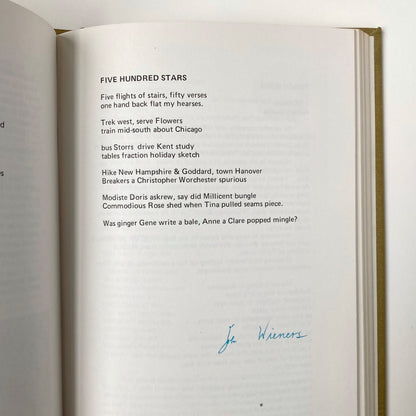 FIVE HUNDRED STARS
Five flights of stairs, fifty verses
one hand back flat my hearses.
Trek west, serve Flowers
train mid-south about Chicago
bus Storrs drive Kent study
tables fraction holiday sketch
Hike New Hampshire & Goddard, town Hanover
Breakers a Christopher Worchester spurious
Modiste Doris askrew, say did Millicent bungle
Commodious Rose shed when Tina pulled seams piece.
Was ginger Gene write a bale, Anne a Clare popped mingle?
Wieners